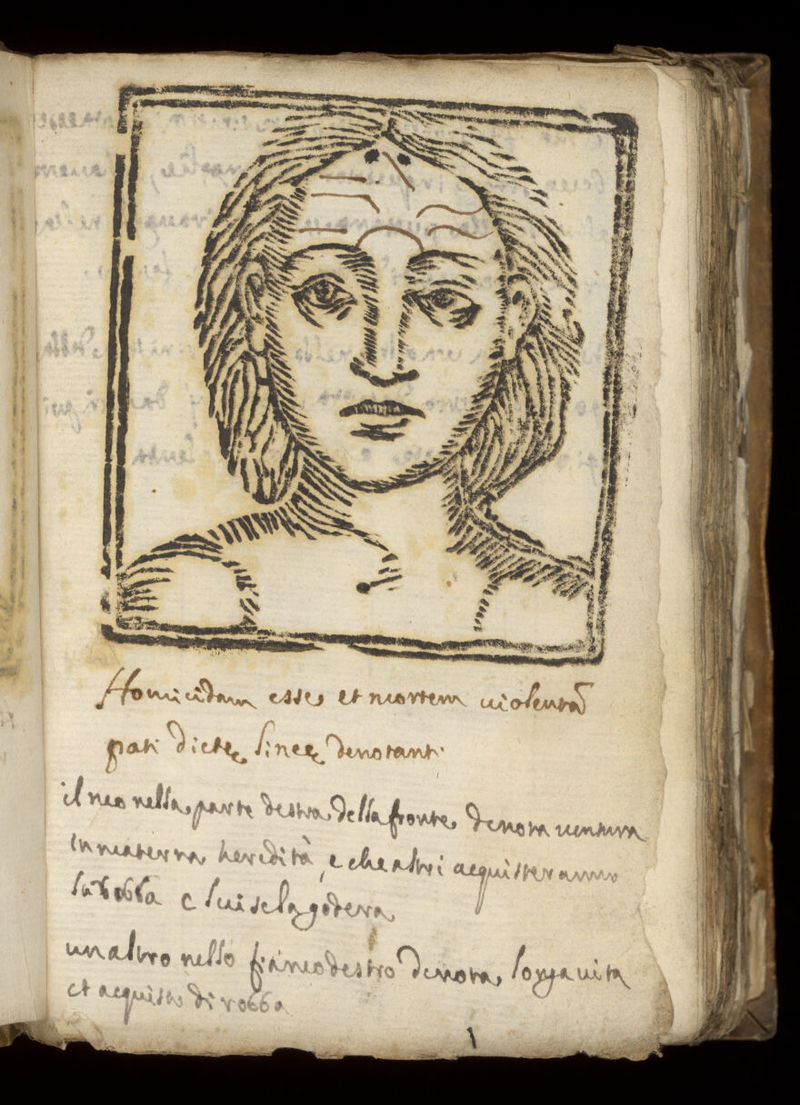 Homicidam esse et mortem uiolentã
pati dictę lineę denotant
il neo nella parte destra della fronte denota uentura
in materia heredità, e che altri acquisteranno
la robba e lui se la goderà
un altro nello fianco destro denota longa uita
et acquisto di robba